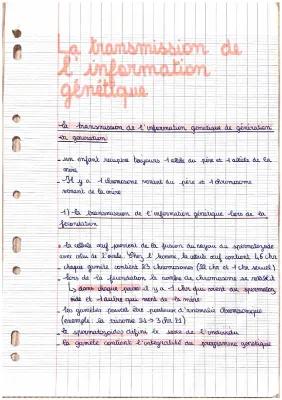 La transmission de
l'information
génétique
-la transmission de l'information génétique de génération
en génération
- un enfant récupère toujours 1 allèle du père et 1 allèle de la
mère
- Il y a 1 chromosome venant du père et 1 chromosome
venant de la mère
-1)-la transmission de l'information génétique lors de la
fécondation
• la cellule œuf provient de la fusion du noyau du spermatozoïde
avec celui de l'ovule. Chez l'homme, la cellule œuf contient 46 chr
- chaque gamète contient 23 chromosomes (22 chr et 1 chr sexuel)
- lors de la fécondation, le nombre de chromosome se rétabli
↳ dans chaque paire il y a 1 chr qui vient du spermatozo
ïde et 1 autre qui vient de la mère
- les gamètes peuvent être porteurs d'anomalie chromosomique
(exemple: la trisomie 21 → 3 chr 21)
- le spermatozoïde défini le sexe de l'individu
- la gamète contient l'intégralité du programme génétique